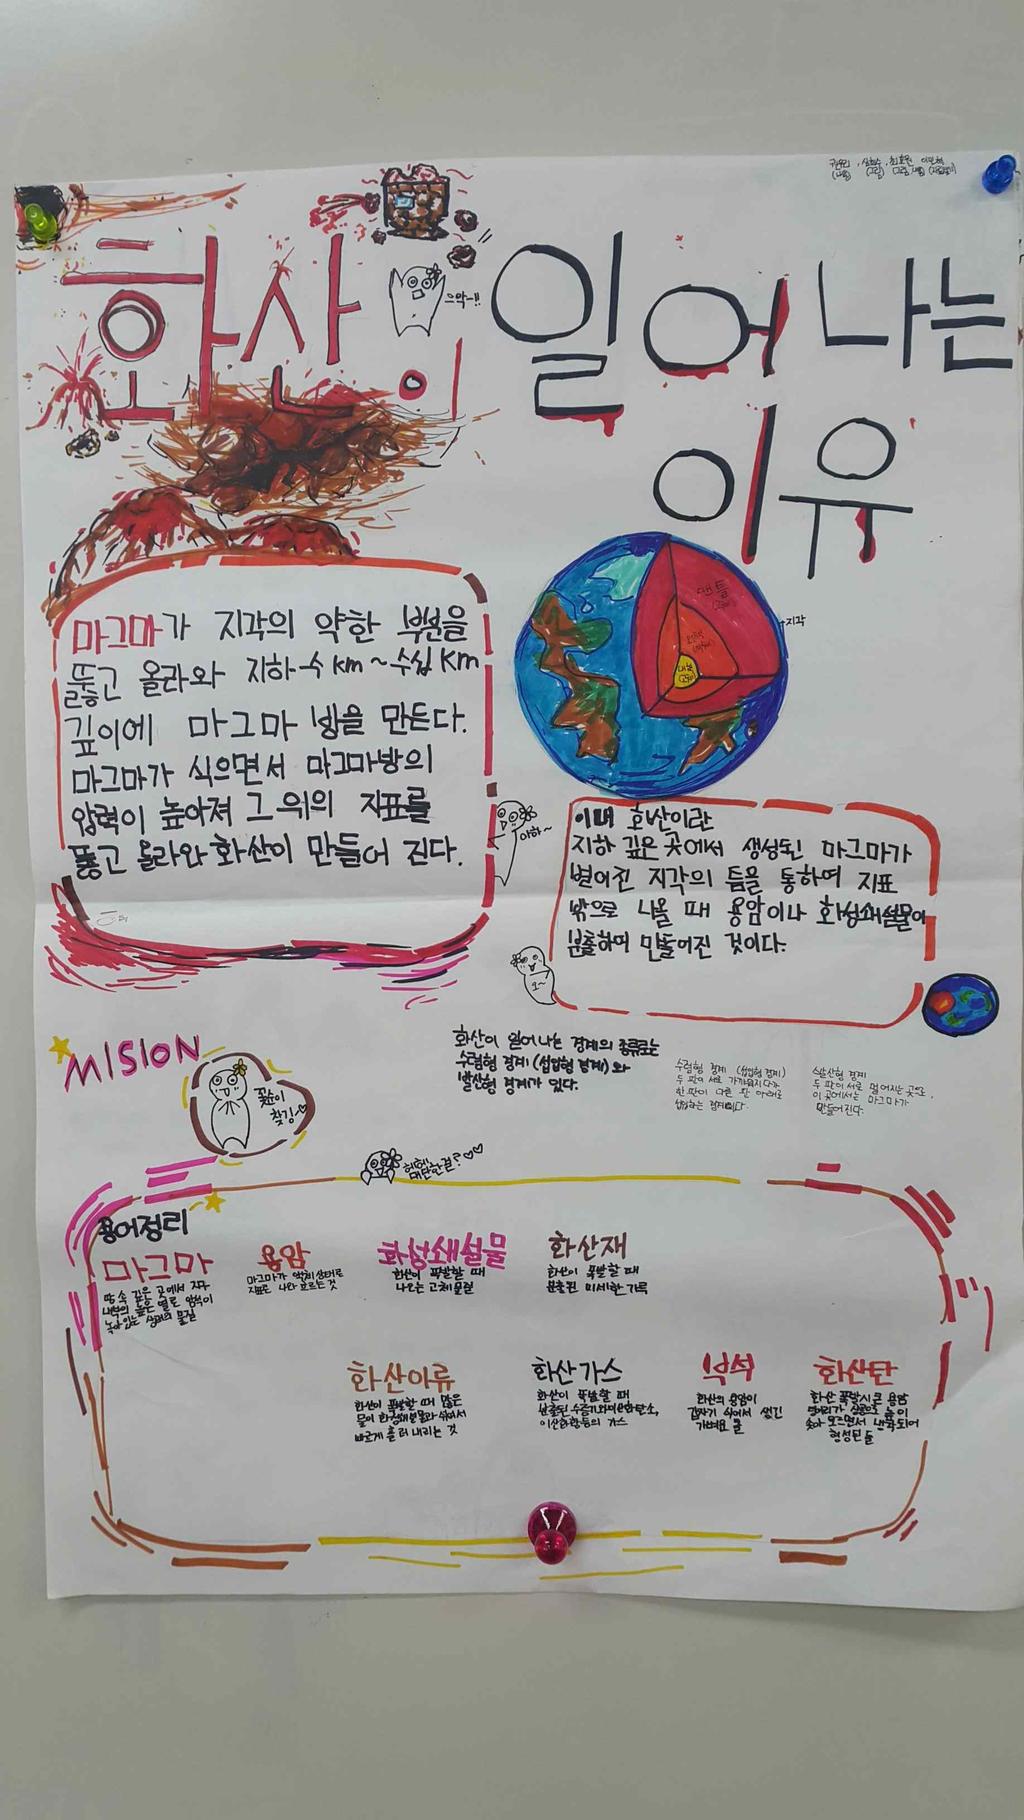 화산이 일어나는
이유
으악~!!
마그마가 지각의 약한 부분을
뚫고 올라와 지하 수 km ~ 수십 Km
깊이에 마그마 방을 만든다.
마그마가 식으면서 마그마방의
압력이 높아져 그 위의 지표를
뚫고 올라와 화산이 만들어 진다.
맨틀
지각
아하~
이때 화산이란
지하 깊은 곳에서 생성된 마그마가
벌어진 지각의 틈을 통하여 지표
밖으로 나올 때 용암이나 화성쇄설물이
분출하여 만들어진 것이다.
오~
MISION
꽃순이
찾깅~♡
화산이 일어나는 경계의 종류로는
수렴형 경계 (섭입형 경계)와
발산형 경계가 있다.
수렴형 경계 (섭입형 경계)
두 판이 서로 가까워지다가
한 판이 다른 판 아래로
섭입하는 경계이다.
발산형 경계
두 판이 서로 멀어지는 곳으로,
이 곳에서는 마그마가
만들어진다.
용어정리
마그마
땅 속 깊은 곳에서 지구
내부의 높은 열로 암석이
녹아있는 상태의 물질
용암
마그마가 액체 상태로
지표로 나와 흐르는 것
화성쇄설물
화산이 폭발할 때
나오는 고체 물질
화산재
화산이 폭발할 때
분출된 미세한 가루
화산이류
화산이 폭발할 때 많은
물이 화성쇄설물과 섞여서
빠르게 흘러 내리는 것
화산가스
화산이 폭발할 때
분출된 수증기와 이산화탄소,
이산화황등의 가스
부석
화산의 용암이
갑자기 식어서 생긴
가벼운 돌
화산탄
화산 폭발시 큰 용암
덩어리가 상공으로 높이
솟아 오르면서 냉각되어
형성된 돌